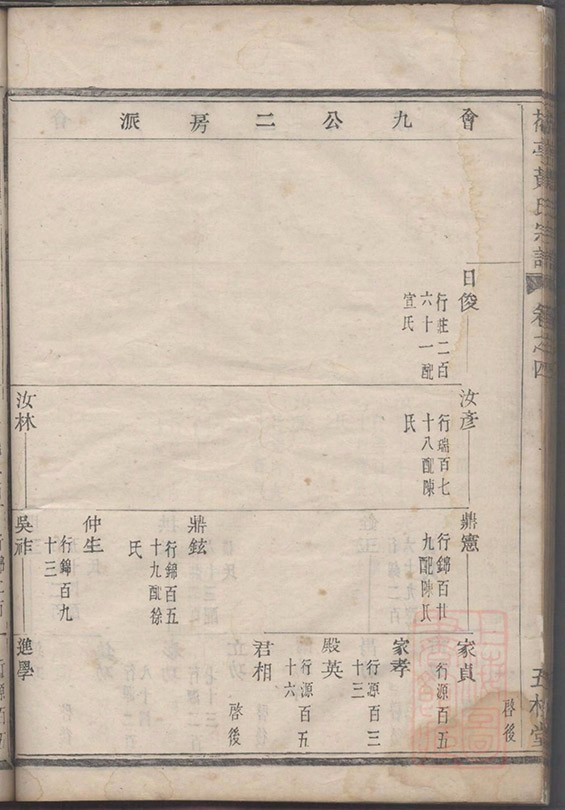 會九公二房派
日俊
行莊二百
六十一配
宣氏
汝彥
行瑞百七
十八配陳
氏
汝林
鼎憲
行錦百廿
九配陳氏
鼎鉉
行錦百五
十九配徐
氏
仲生
行錦百九
十三
吳祚
家貞
行源百五
啓後
家孝
行源百三
十三
殿英
行源百五
十六
君相
啓後
進學
黃氏宗譜
卷之四